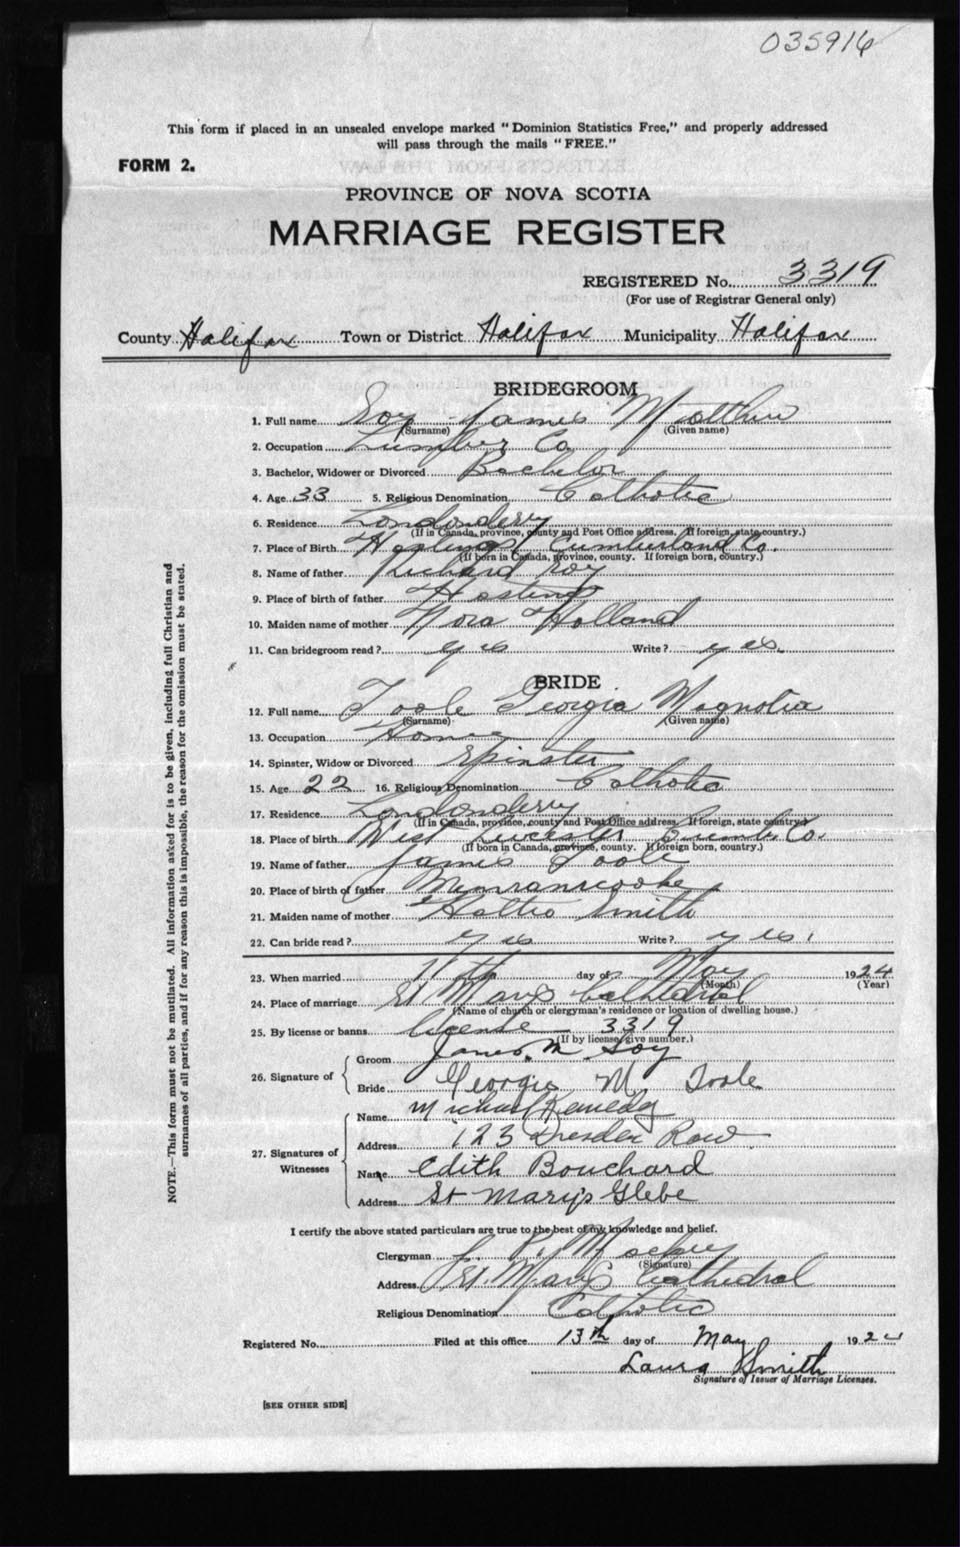 035916
This form if placed in an unsealed envelope marked "Dominion Statistics Free," and properly addressed
will pass through the mails "FREE."
FORM 2.
PROVINCE OF NOVA SCOTIA
MARRIAGE REGISTER
REGISTERED No. 3319
(For use of Registrar General only)
County Halifax Town or District Halifax Municipality Halifax
BRIDEGROOM
1. Full name Soy James Matthew
(Surname) (Given name)
2. Occupation Lumber Co.
3. Bachelor, Widower or Divorced Bachelor
4. Age 33 5. Religious Denomination Catholic
6. Residence Londonderry
(If in Canada, province, county and Post Office address. If foreign, state country.)
7. Place of Birth Hastings Cumberland Co.
(If born in Canada, province, county. If foreign born, country.)
8. Name of father Richard Soy
9. Place of birth of father Hastings
10. Maiden name of mother Nora Holland
11. Can bridegroom read? yes Write? yes.
BRIDE
12. Full name Toole Georgia Magnolia
(Surname) (Given name)
13. Occupation Home
14. Spinster, Widow or Divorced Spinster
15. Age 22 16. Religious Denomination Catholic
17. Residence Londonderry
(If in Canada, province, county and Post Office address. If foreign, state country.)
18. Place of birth West Co.
(If born in Canada, province, county. If foreign born, country.)
19. Name of father James Toole
20. Place of birth of father
21. Maiden name of mother Smith
22. Can bride read? yes Write? yes.
23. When married 11th day of May 1924
(Month) (Year)
24. Place of marriage St Marys Cathedral
(Name of church or clergyman's residence or location of dwelling house.)
25. By license or banns license 3319
(If by license, give number.)
26. Signature of
Groom James M. Soy
Bride Georgie M. Toole
27. Signatures of Witnesses
Name Michael Kenedy
Address 123 Dresden Row
Name Edith Bouchard
Address St Mary's Glebe
I certify the above stated particulars are true to the best of my knowledge and belief.
Clergyman
(Signature)
Address St. Marys Cathedral
Religious Denomination Catholic
Registered No. Filed at this office 13th day of May 1924
Laura Smith
Signature of Issuer of Marriage Licenses.
[SEE OTHER SIDE]
NOTE.—This form must not be mutilated. All information asked for is to be given, including full Christian and
surnames of all parties, and if for any reason this is impossible, the reason for the omission must be stated.